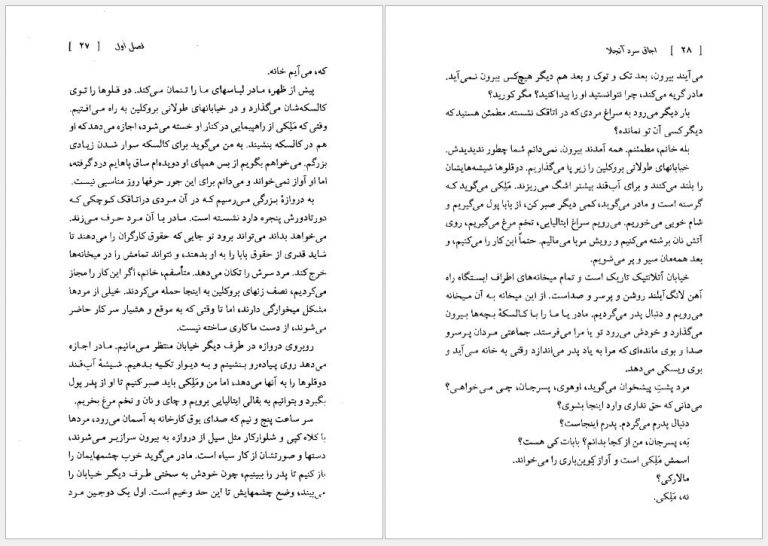 فصل اول [ ۲۷ ]
که، می‌آیم خانه.
پیش از ظهر، مادر لباسهای ما را تنمان می‌کند. دو قلوها را توی
کالسکه‌شان می‌گذارد و در خیابانهای طولانی بروکلین به راه می‌افتیم.
وقتی که مَلِکی از راهپیمایی در کنار او خسته می‌شود، اجازه می‌دهد که او
هم در کالسکه بنشیند. به من می‌گوید برای کالسکه سوار شدن زیادی
بزرگم. می‌خواهم بگویم از بس همپای او دویده‌ام ساق پاهایم درد گرفته،
اما او آواز نمی‌خواند و می‌دانم برای این جور حرفها روز مناسبی نیست.
به دروازهٔ بزرگی می‌رسیم که در آن مردی در اتاقک کوچکی که
دورتادورش پنجره دارد نشسته است. مادر با آن مرد حرف می‌زند.
می‌خواهد بداند می‌تواند برود تو جایی که حقوق کارگران را می‌دهند تا
شاید قدری از حقوق بابا را به او بدهند، و نتواند تمامش را در میخانه‌ها
خرج کند. مرد سرش را تکان می‌دهد. متأسفم، خانم، اگر این کار را مجاز
می‌کردیم، نصف زنهای بروکلین به اینجا حمله می‌کردند. خیلی از مردها
مشکل میخوارگی دارند، اما تا وقتی که به موقع و هشیار سر کار حاضر
می‌شوند، از دست ما کاری ساخته نیست.
روبروی دروازه در طرف دیگر خیابان منتظر می‌مانیم. مادر اجازه
می‌دهد روی پیاده‌رو بنشینم و به دیوار تکیه بدهم. شیشهٔ آب‌قند
دوقلوها را به آنها می‌دهد، اما من و مَلِکی باید صبر کنیم تا او از پدر پول
بگیرد و بتوانیم به بقالی ایتالیایی برویم و چای و نان و تخم مرغ بخریم.
سر ساعت پنج و نیم که صدای بوق کارخانه به آسمان می‌رود، مردها
با کلاه کپی و شلوارکار مثل سیل از دروازه به بیرون سرازیر می‌شوند،
دستها و صورتشان از کار سیاه است. مادر می‌گوید خوب چشمهایمان را
باز کنیم تا پدر را ببینیم، چون خودش به سختی طرف دیگر خیابان را
می‌بیند، وضع چشمهایش تا این حد وخیم است. اول یک دوجین مرد
[ ۲۸ ] اجاق سرد آنجلا
می‌آیند بیرون، بعد تک و توک و بعد هم دیگر هیچ‌کس بیرون نمی‌آید.
مادر گریه می‌کند، چرا نتوانستید او را پیدا کنید؟ مگر کورید؟
بار دیگر می‌رود به سراغ مردی که در اتاقک نشسته. مطمئن هستید که
دیگر کسی آن تو نمانده؟
بله خانم، مطمئنم. همه آمدند بیرون. نمی‌دانم شما چطور ندیدیدش.
خیابانهای طولانی بروکلین را زیر پا می‌گذاریم. دوقلوها شیشه‌هایشان
را بلند می‌کنند و برای آب‌قند بیشتر اشک می‌ریزند. مَلِکی می‌گوید که
گرسنه است و مادر می‌گوید، کمی دیگر صبر کن، از بابا پول می‌گیریم و
شام خوبی می‌خوریم. می‌رویم سراغ ایتالیایی، تخم مرغ می‌گیریم، روی
آتش نان برشته می‌کنیم و رویش مربا می‌مالیم. حتماً این کار را می‌کنیم، و
بعد همه‌مان سیر و پر می‌شویم.
خیابان آتلانتیک تاریک است و تمام میخانه‌های اطراف ایستگاه راه
آهن لانگ‌آیلند روشن و پرسر و صداست. از این میخانه به آن میخانه
می‌رویم و دنبال پدر می‌گردیم. مادر یا ما را با کالسکهٔ بچه‌ها بیرون
می‌گذارد و خودش می‌رود تو یا مرا می‌فرستد. جماعتی مردان پرسرو
صدا و بوی مانده‌ای که مرا به یاد پدر می‌اندازد وقتی به خانه می‌آید و
بوی ویسکی می‌دهد.
مرد پشتِ پیشخوان می‌گوید، اوهوی، پسرجان، چی می‌خواهی؟
می‌دانی که حق نداری وارد اینجا بشوی؟
دنبال پدرم می‌گردم. پدرم اینجاست؟
نَه، پسرجان، من از کجا بدانم؟ بابات کی هست؟
اسمش مَلِکی است و آواز کِوین‌باری را می‌خواند.
مالارکی؟
نه، مَلِکی.